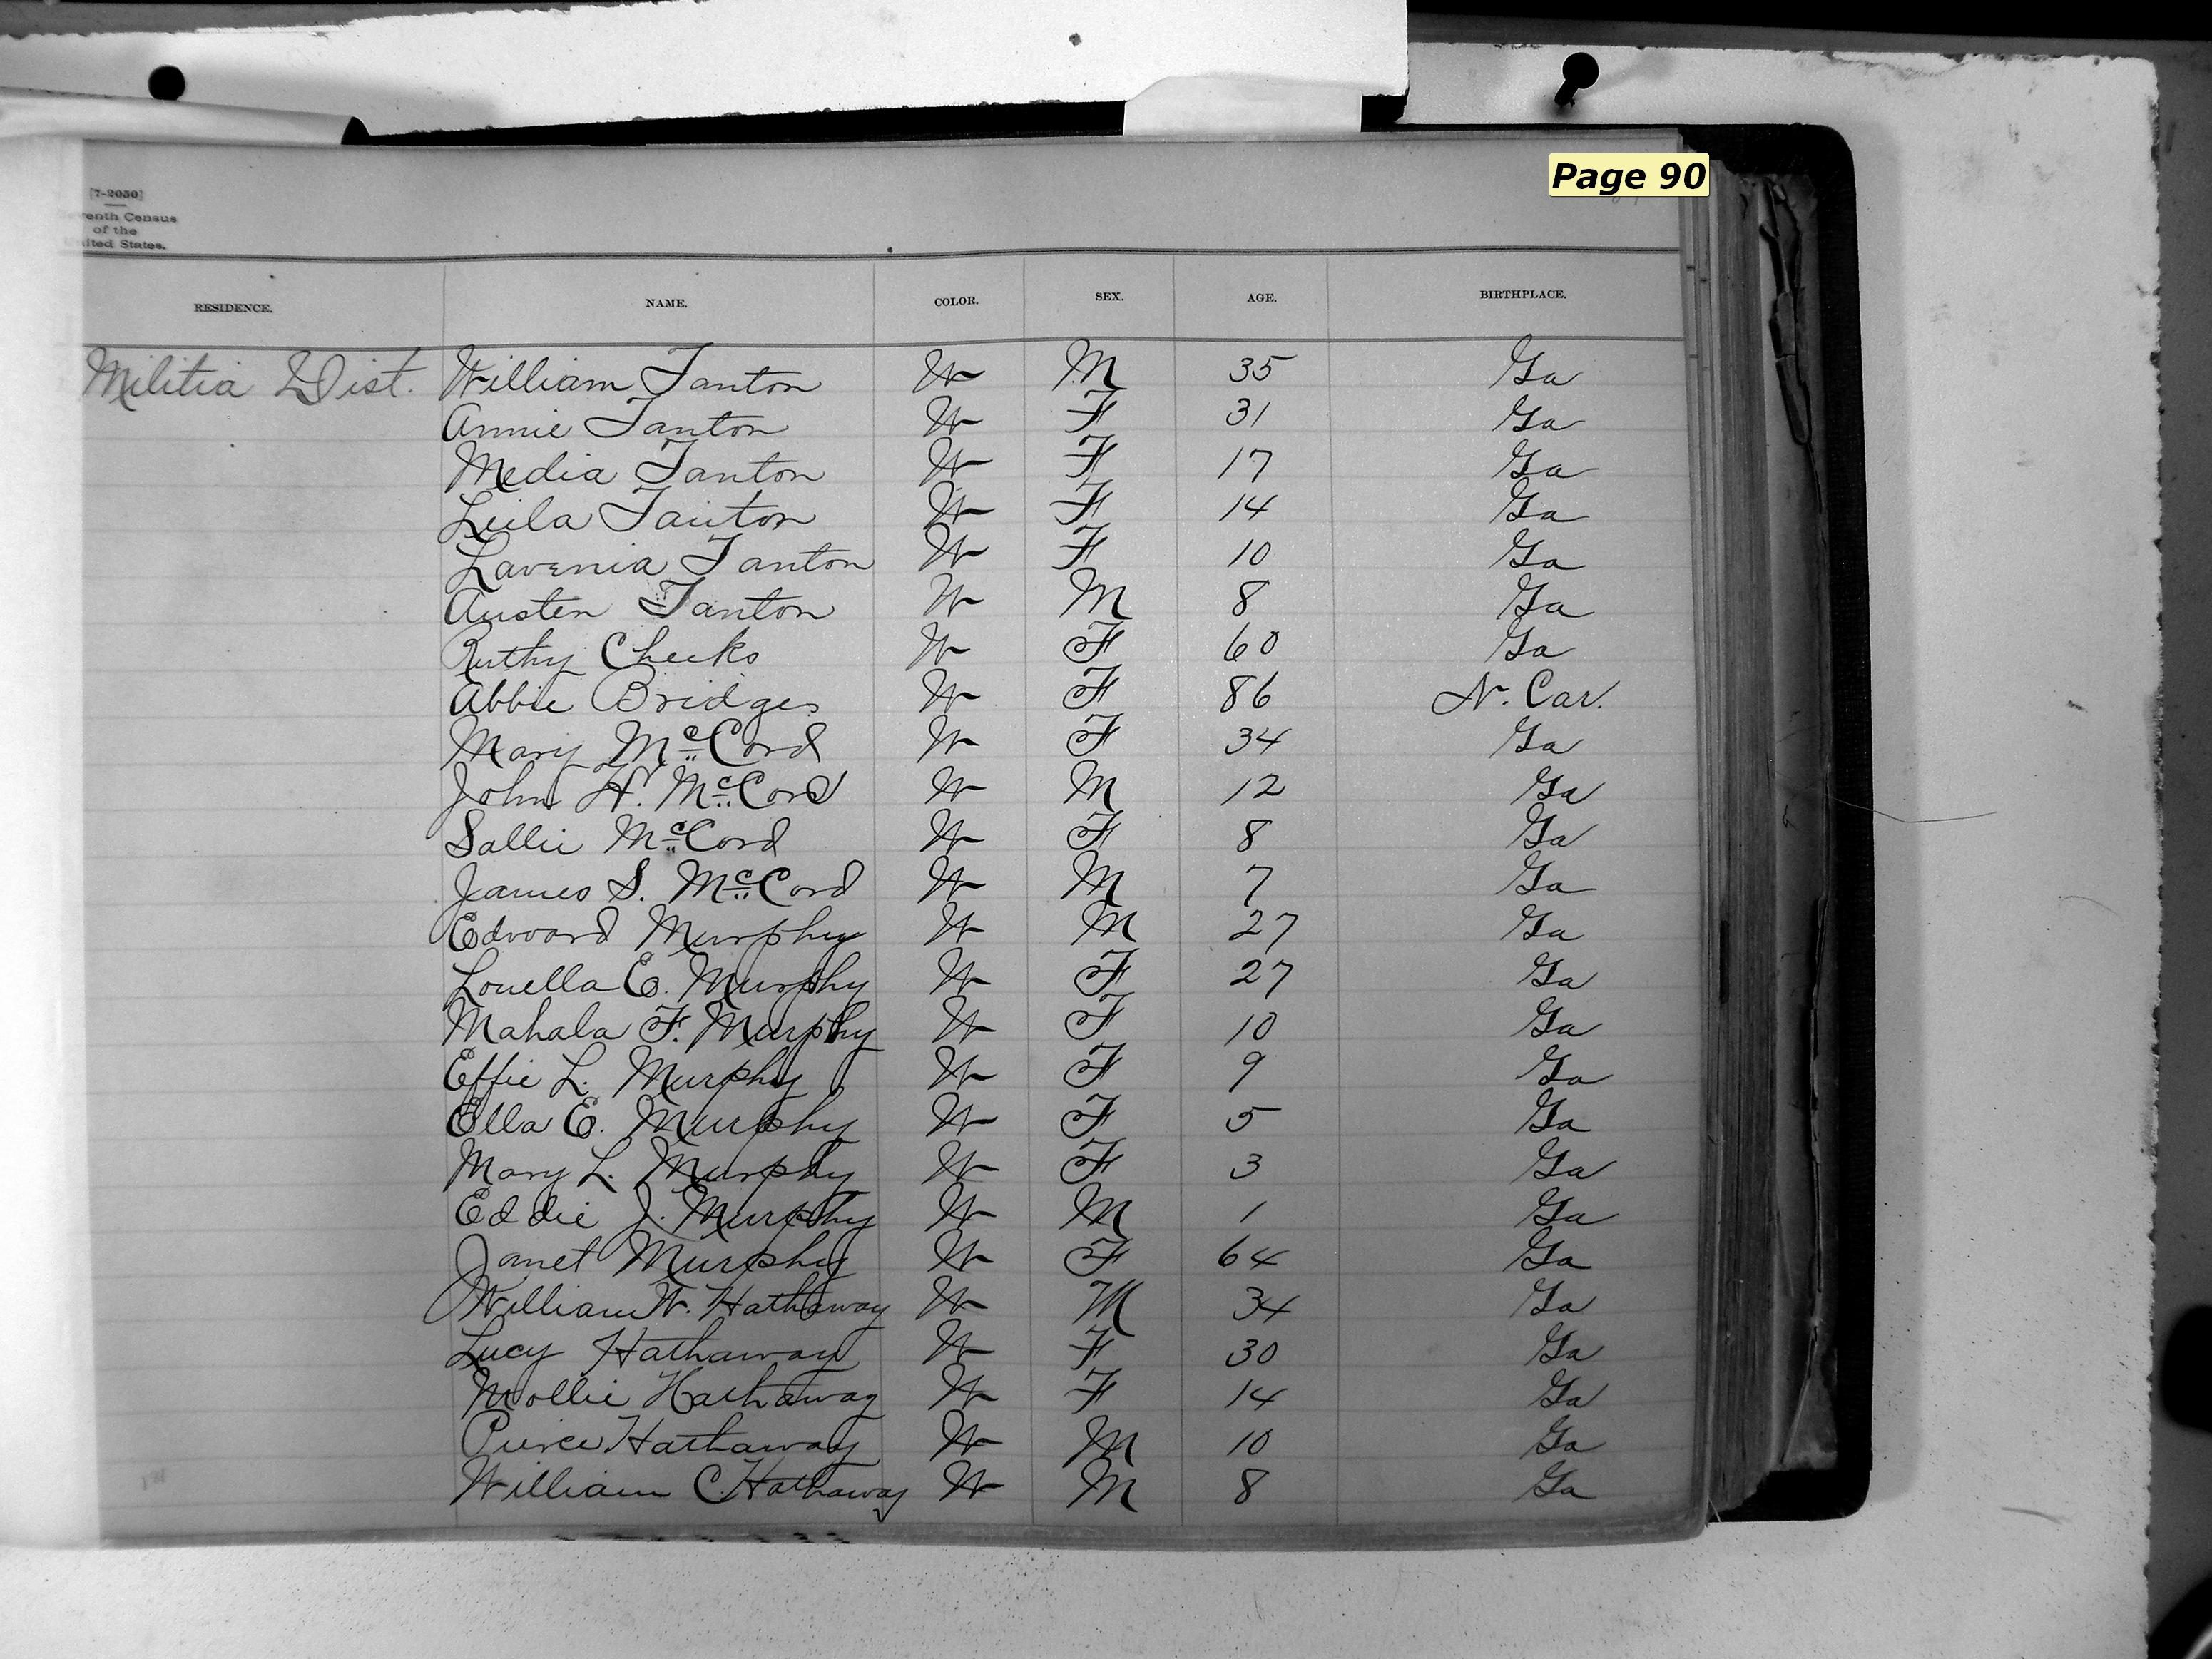 Page 90
[7-2050]
enth Census
of the
ited States.
RESIDENCE. NAME. COLOR. SEX. AGE. BIRTHPLACE.
Militia Dist. William Tanton W M 35 Ga
Annie Tanton W F 31 Ga
Media Tanton W F 17 Ga
Leila Tanton W F 14 Ga
Lavenia Tanton W F 10 Ga
Austen Tanton W M 8 Ga
Ruthy Cheeks W F 60 Ga
Abbie Bridges W F 86 N. Car.
Mary McCord W F 34 Ga
John H. McCord W M 12 Ga
Sallie McCord W F 8 Ga
James S. McCord W M 7 Ga
Edward Murphy W M 27 Ga
Louella E. Murphy W F 27 Ga
Mahala F. Murphy W F 10 Ga
Effie L. Murphy W F 9 Ga
Ella E. Murphy W F 5 Ga
Mary L. Murphy W F 3 Ga
Eddie J. Murphy W M 1 Ga
Janet Murphy W F 64 Ga
William W. Hathaway W M 34 Ga
Lucy Hathaway W F 30 Ga
Mollie Hathaway W F 14 Ga
Pierce Hathaway W M 10 Ga
William C. Hathaway W M 8 Ga